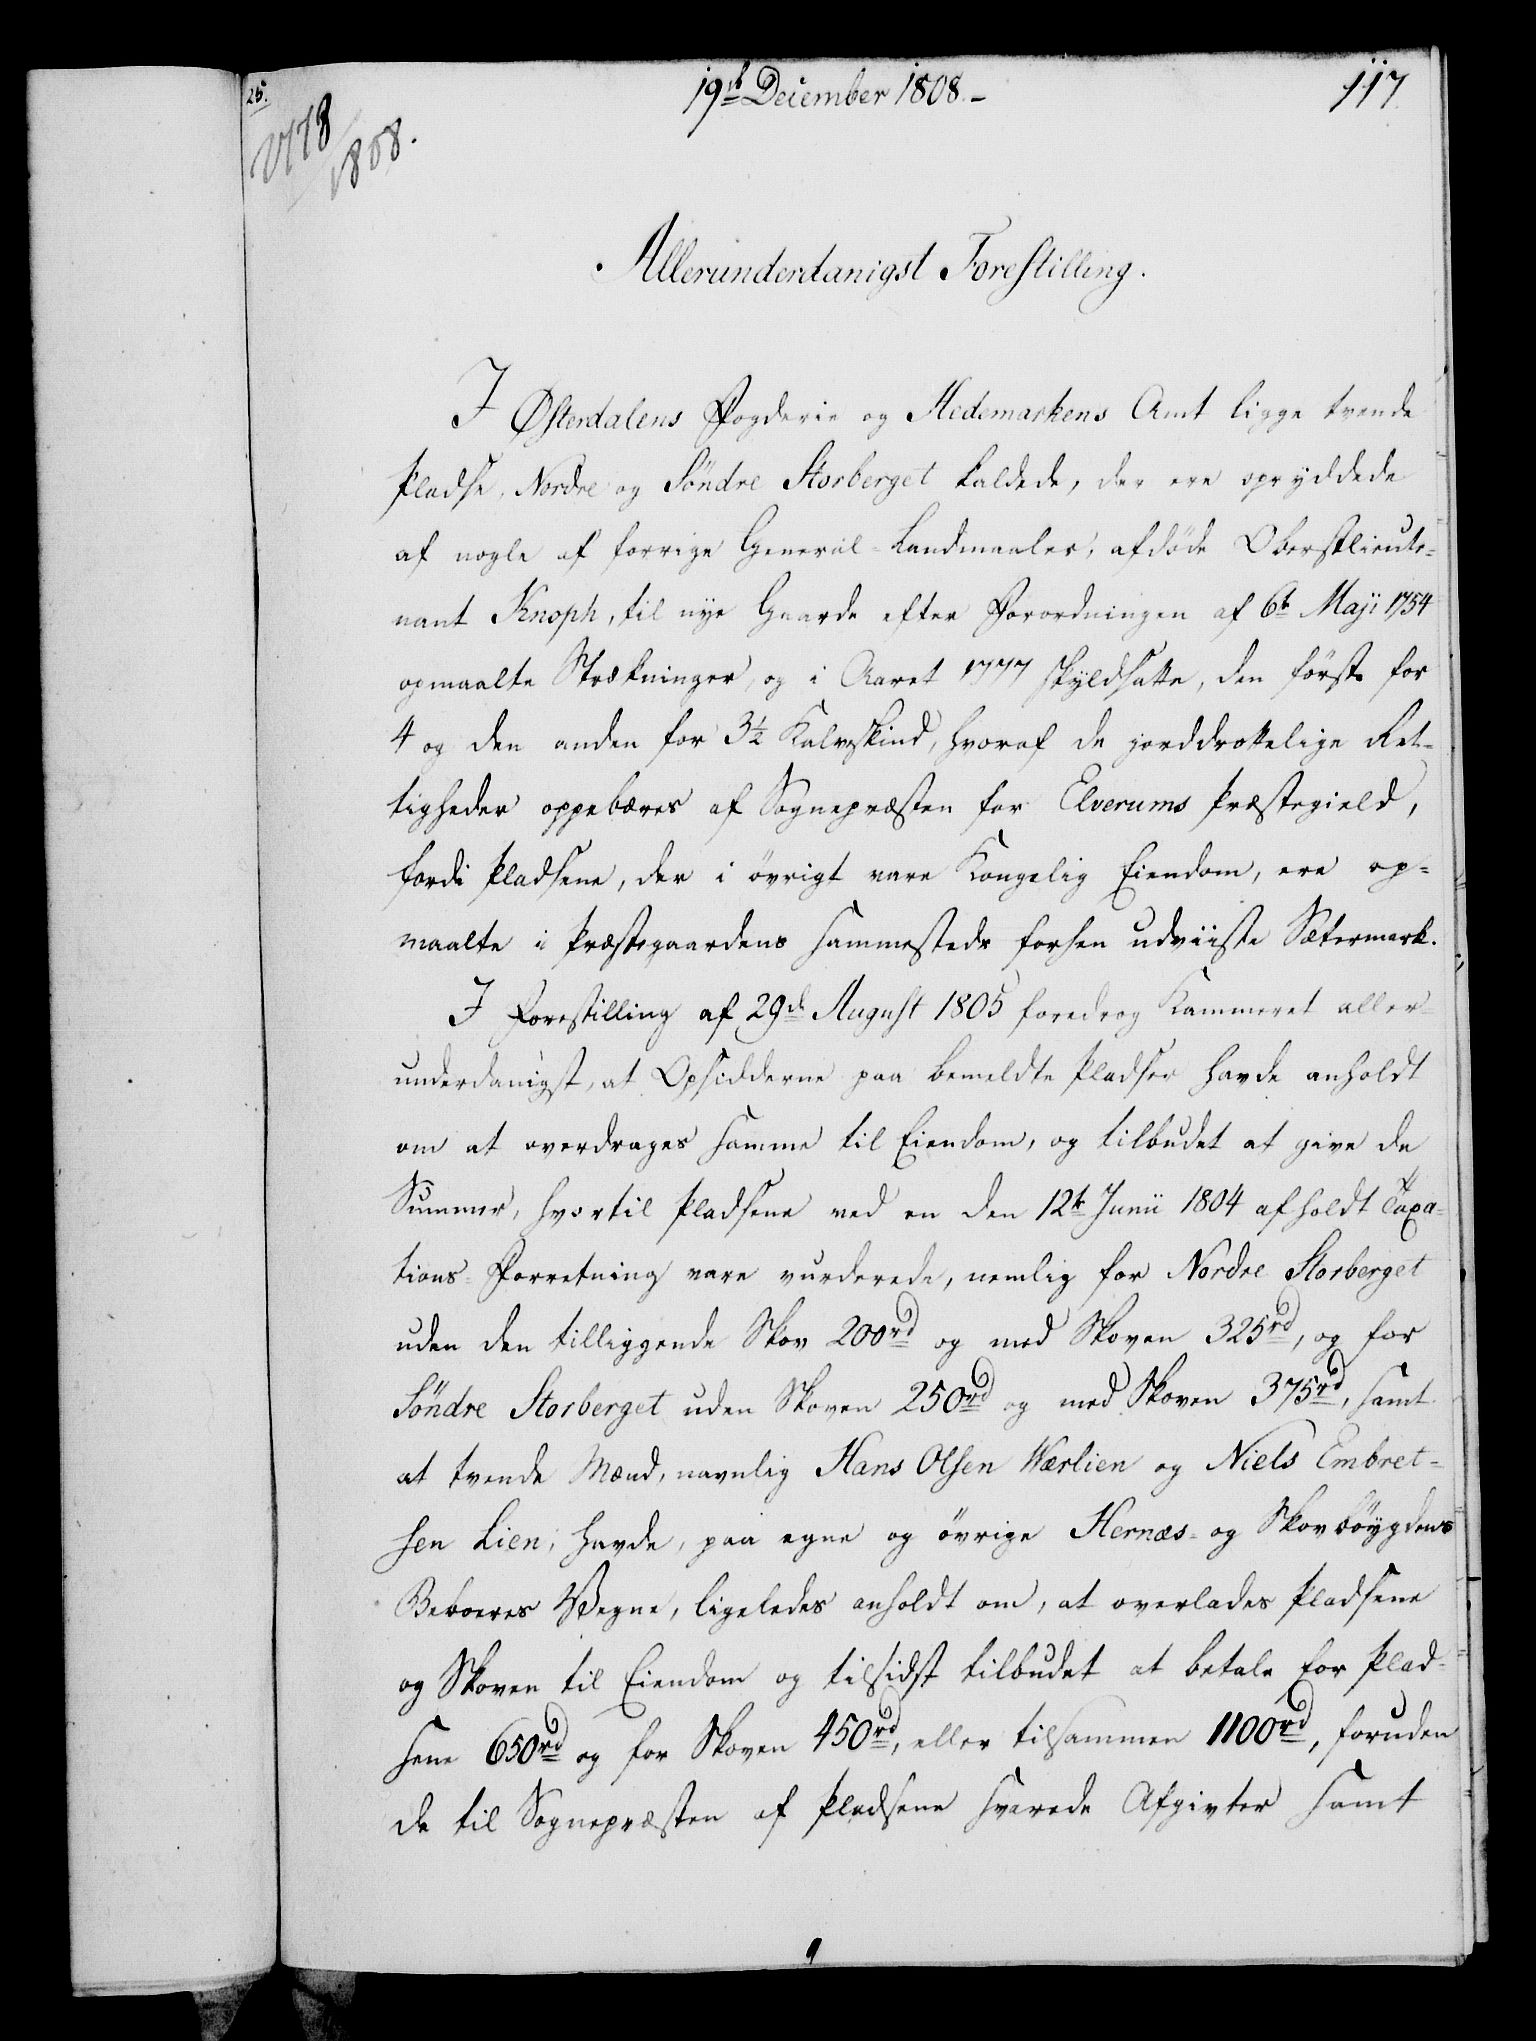 25.
19de December 1808.-
117
1808.
Allerunderdanigst Forestilling.
I Østerdalens Fogderie og Hedemarkens Amt ligge tvende
Pladse, Nordre og Söndre Storberget kaldede, der ere opryddede
af nogle af forrige General-Landmaaler, afdöde Oberstlieute-
nant Knoph, til nye Gaarde efter Forordningen af 6te Maji 1754
opmaalte Strækninger, og i Aaret 1777 skyldsatte, den förste for
4 og den anden for 3½ Kalvskind, hvoraf de jorddrottelige Ret-
tigheder oppebæres af Sognepræsten for Elverums Præstegield,
fordi Pladsene, der i övrigt vare Kongelig Eiendom, ere op-
maalte i Præstegaardens sammesteds forhen udviiste Sætermark.
I Forestilling af 29de August 1805 foredrog Kammeret aller-
underdanigst, at Opsidderne paa bemeldte Pladser havde anholdt
om at overdrages samme til Eiendom, og tilbudet at give de
Summer, hvortil Pladsene ved en den 12te Junii 1804 afholdt Taxa-
tions-Forretning vare vurderede, nemlig for Nordre Storberget
uden den tilliggende Skov 200rd og med Skoven 325rd, og for
Söndre Storberget uden Skoven 250rd og med Skoven 375rd, samt
at tvende Mænd, navnlig Hans Olsen Værlien og Niels Embret-
sen Lien, havde, paa egne og övrige Hernæs- og Skovböygdens
Beboeres Vegne, ligeledes anholdt om, at overlades Pladsene
og Skoven til Eiendom og tilsidst tilbudet at betale for Plad-
sene 650rd og for Skoven 450rd, eller tilsammen 1100rd, foruden
de til Sognepræsten af Pladsene svarede Afgivter samt